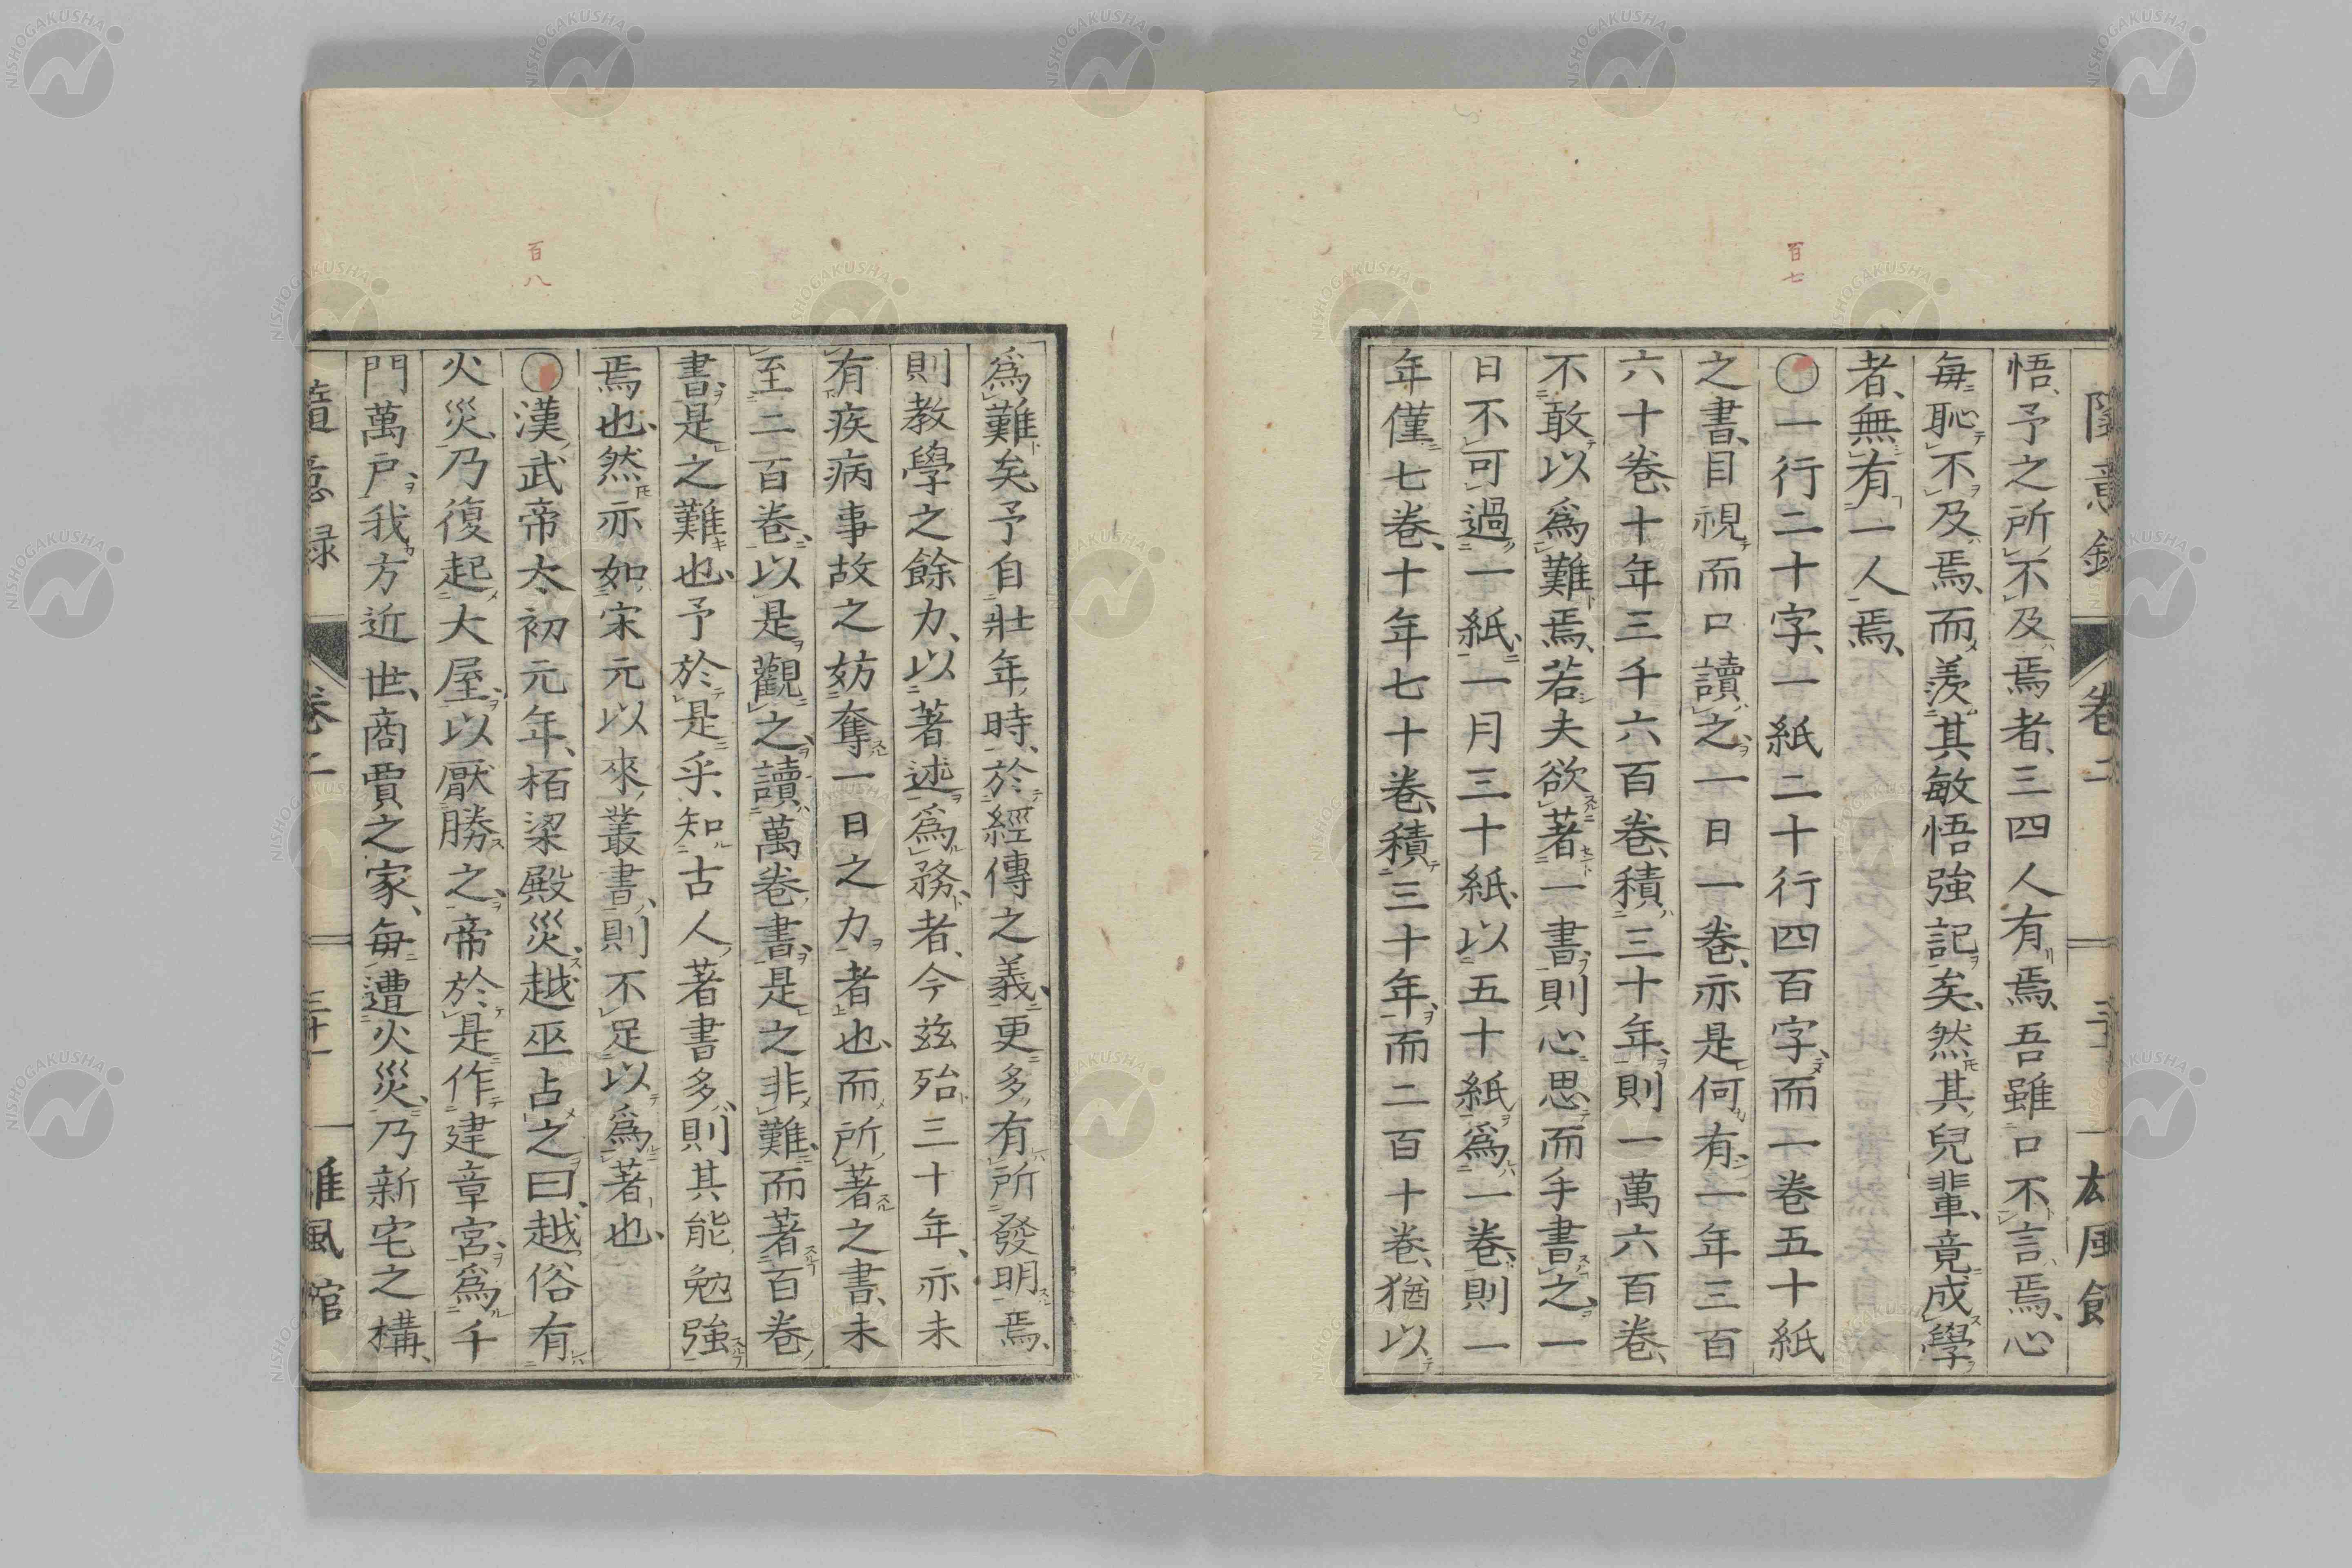 隨意錄 卷二
悟、予之所不及焉者、三四人有焉、吾雖口不言焉、心
每恥不及焉、而羨其敏悟強記矣、然其兒輩、竟成學
者、無有一人焉、
百七
○一行二十字、一紙二十行四百字、而一卷五十紙
之書、目視而口讀之、一日一卷、亦是何有、一年三百
六十卷、十年三千六百卷、積三十年、則一萬六百卷、
不敢以爲難焉、若夫欲著一書、則心思而手書之、一
日不可過一紙、一月三十紙、以五十紙爲一卷、則一
年僅七卷、十年七十卷、積三十年、而二百十卷、猶以
爲難矣、予自壯年時、於經傳之義、更多有所發明焉、
則教學之餘力、以著述爲務者、今茲殆三十年、亦未
有疾病事故之妨奪一日之力者也、而所著之書、未
至二百卷、以是觀之、讀萬卷書、是之非難、而著百卷
書、是之難也、予於是乎、知古人著書多、則其能勉強
焉也、然亦如宋元以來叢書、則不足以爲著也、
百八
○漢武帝太初元年、栢梁殿災、越巫占之曰、越俗有
火災、乃復起大屋、以厭勝之、帝於是作建章宮、爲千
門萬戶、我方近世、商賈之家、每遭火災、乃新宅之構、
隨意錄 卷二 三十一 雄風館
NISHOGAKUSHA